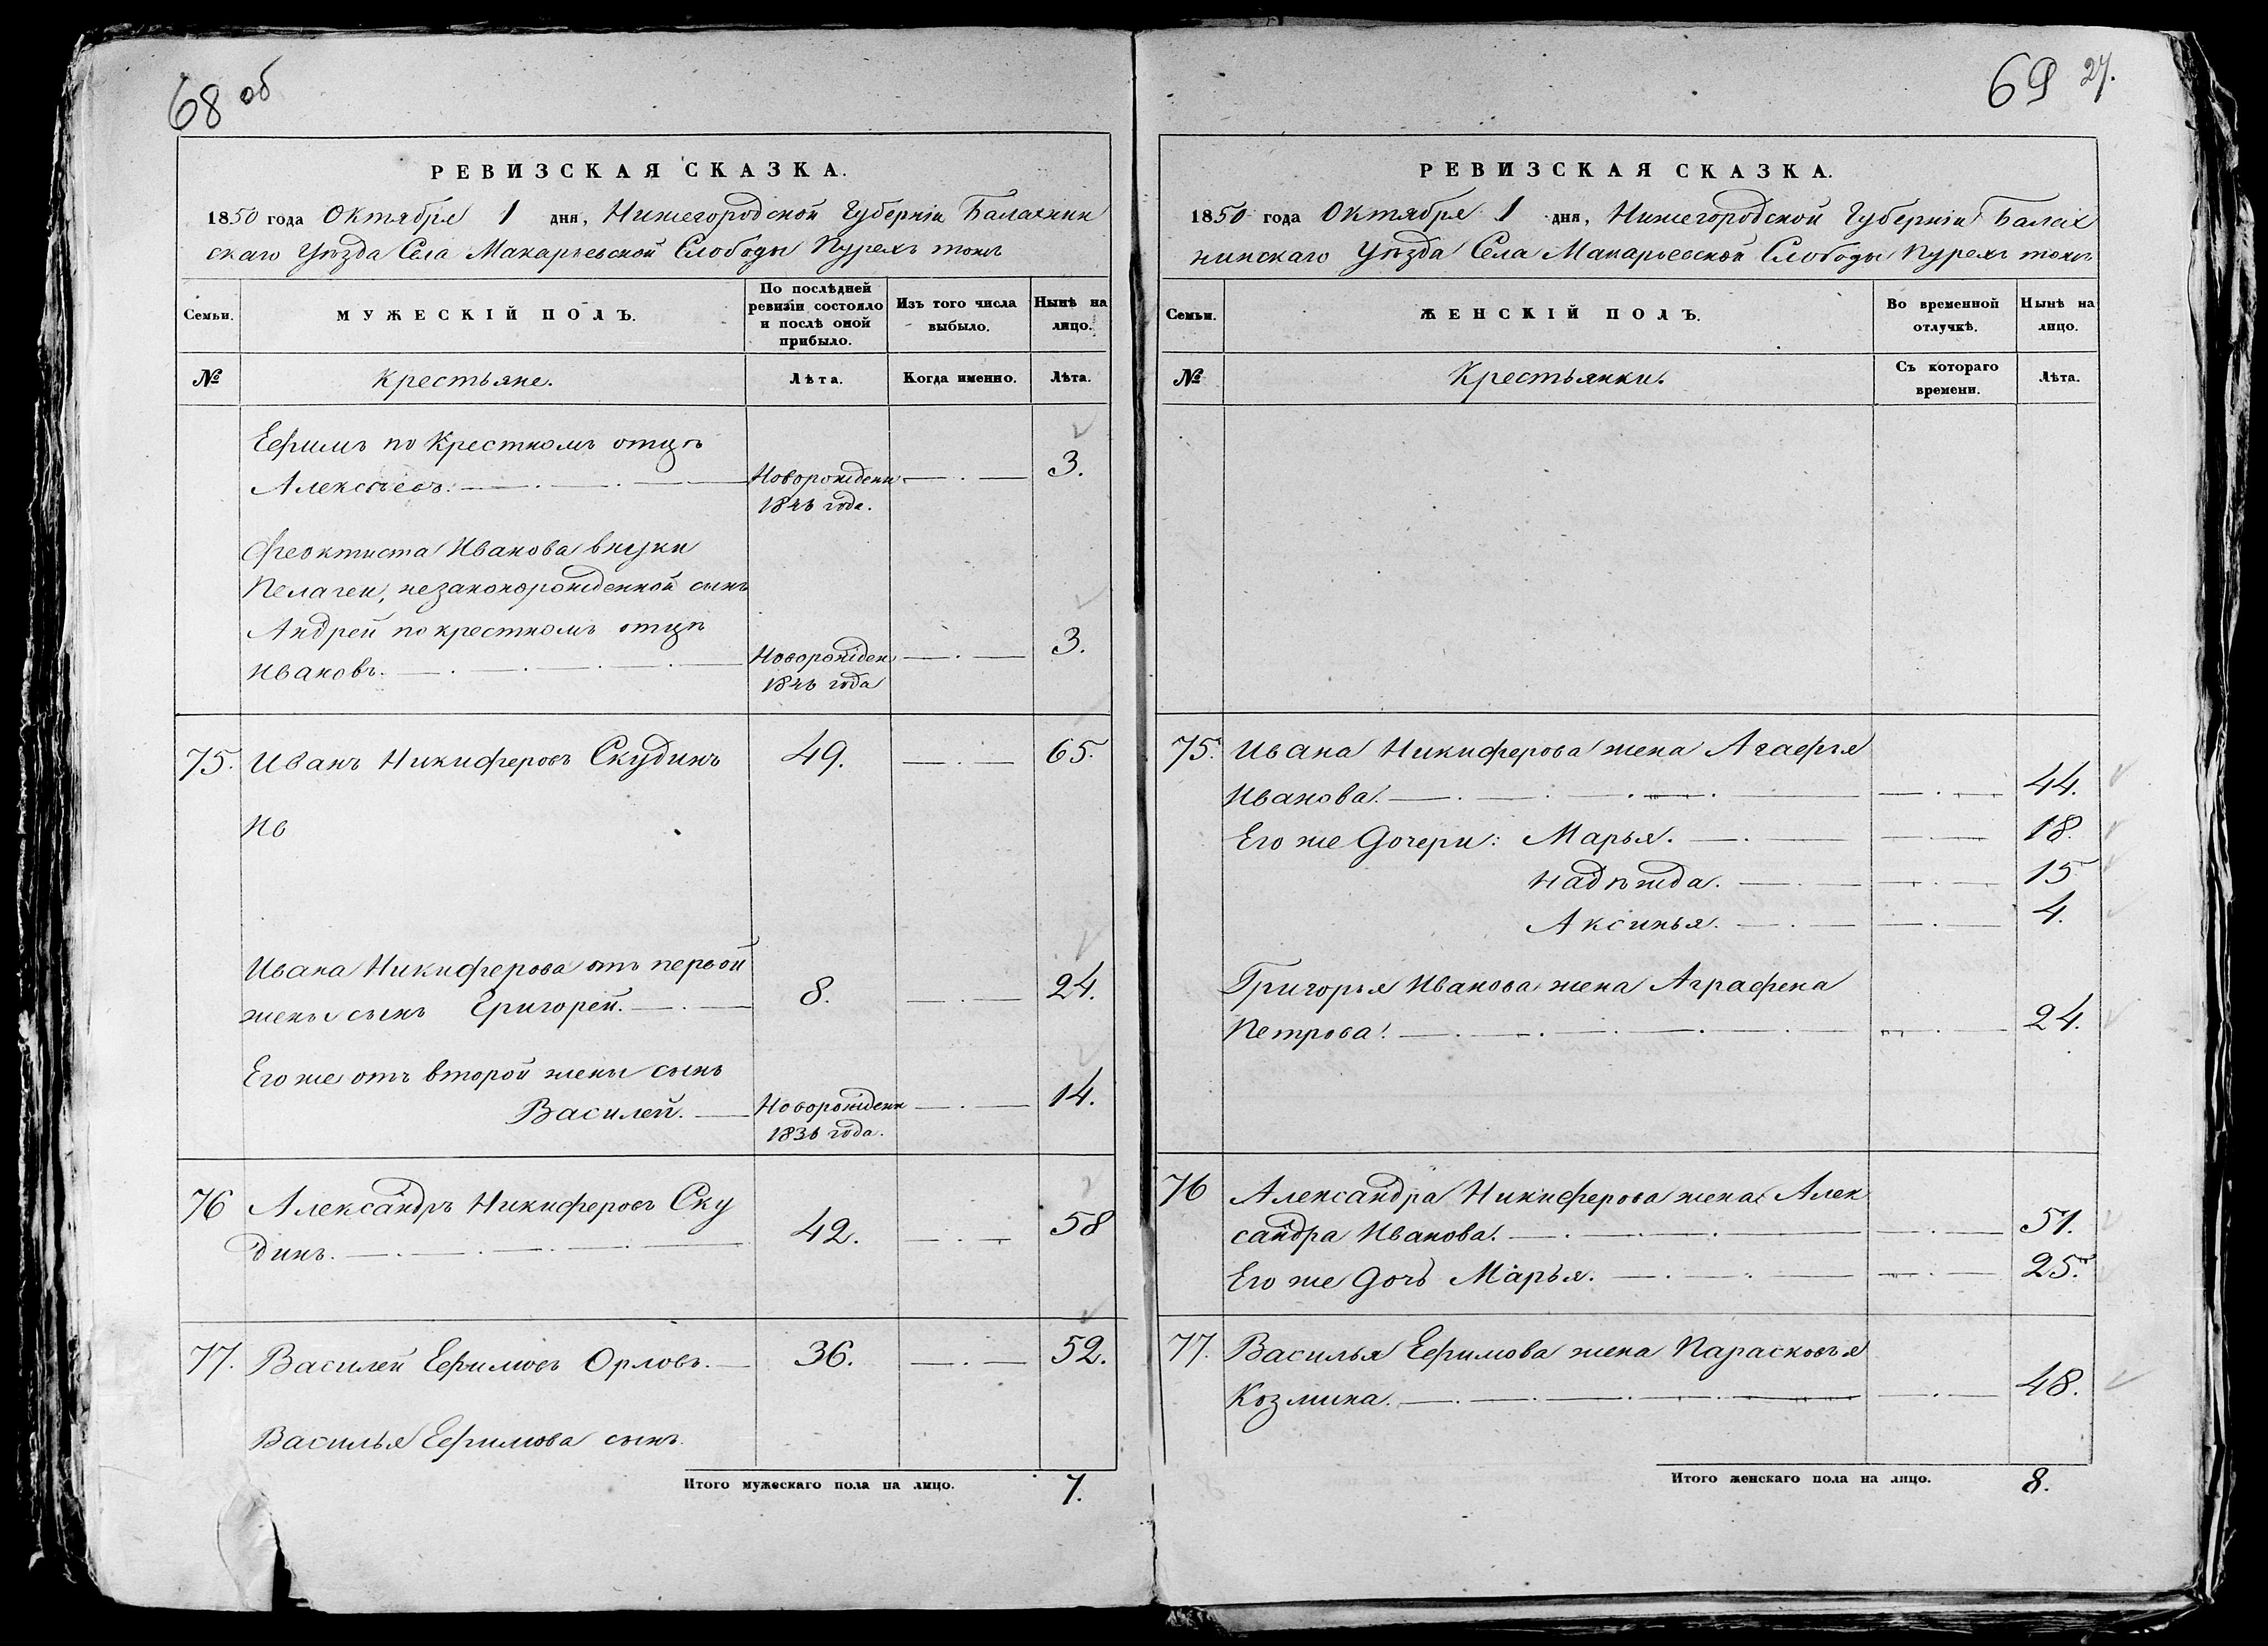 68 об
РЕВИЗСКАЯ СКАЗКА.
1850 года Октября 1 дня, Нижегородской Губерніи Балахнин
скаго Уѣзда Села Макарьевской Слободы Пурехъ тожъ
Семьи.
МУЖЕСКІЙ ПОЛЪ.
По послѣдней
ревизіи состояло
и послѣ оной
прибыло.
Изъ того числа
выбыло.
Нынѣ на
лицо.
№
Крестьяне.
Лѣта.
Когда именно.
Лѣта.
Ефимъ по Крестномъ отцѣ
Алексѣевъ. Новорожденн 3.
года.
Феоктиста Иванова внуки
Пелагеи, незаконорожденной сынъ
Андрей по крестномъ отцѣ
Ивановъ. Новорожден 3.
года
75. Иванъ Никиферовъ Скудинъ 49. 65.
Ив
Ивана Никиферова отъ первой
жены сынъ Григорей. 8. 24.
Его же отъ второй жены сынъ
Василей. Новорожденн 14.
1836 года.
76 Александръ Никиферовъ Ску
динъ. 42. 58
77. Василей Ефимовъ Орловъ. 36. 52.
Василья Ефимова сынъ.
Итого мужескаго пола на лицо. 7.
69 27.
РЕВИЗСКАЯ СКАЗКА.
1850 года Октября 1 дня, Нижегородской Губерніи Балах
нинскаго Уѣзда Села Макарьевской Слободы Пурехъ тожъ
Семьи.
ЖЕНСКІЙ ПОЛЪ.
Во временной
отлучкѣ.
Нынѣ на
лицо.
№
Крестьянки.
Съ котораго
времени.
Лѣта.
75. Ивана Никиферова жена Агафья
Иванова. 44.
Его же дочери: Марья. 18.
Надѣжда. 15
Аксинья. 4.
Григорья Иванова жена Аграфена
Петрова. 24.
76 Александра Никиферова жена Алек
сандра Иванова. 51.
Его же дочь Марья. 25.
77. Василья Ефимова жена Парасковья
Козмина. 48.
Итого женскаго пола на лицо. 8.